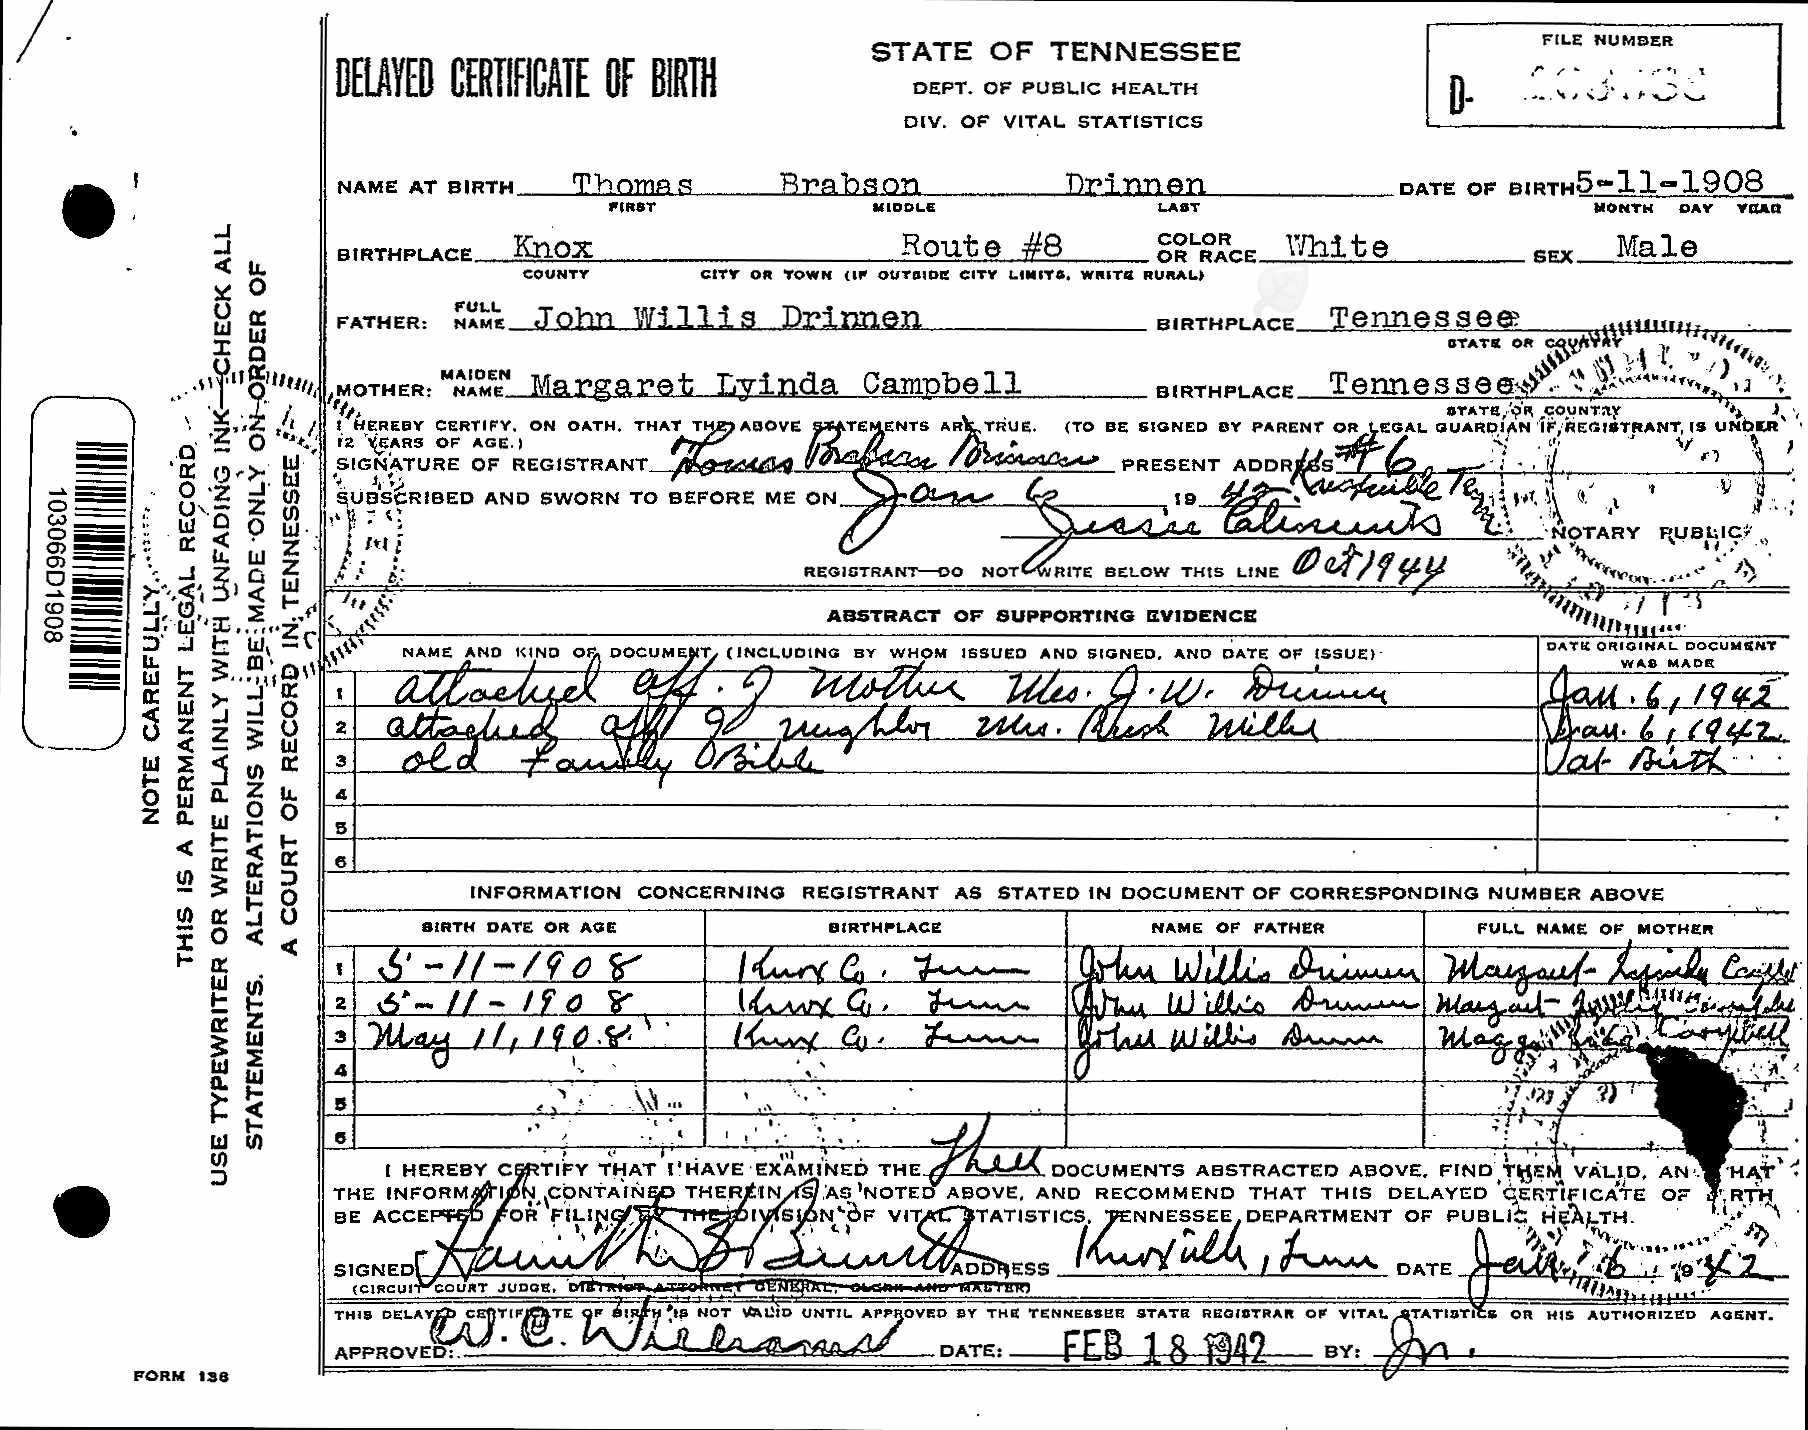 DELAYED CERTIFICATE OF BIRTH
STATE OF TENNESSEE
DEPT. OF PUBLIC HEALTH
DIV. OF VITAL STATISTICS
FILE NUMBER
D-
NAME AT BIRTH Thomas Brabson Drinnen DATE OF BIRTH 5-11-1908
FIRST MIDDLE LAST MONTH DAY YEAR
BIRTHPLACE Knox Route #8 COLOR OR RACE White SEX Male
COUNTY CITY OR TOWN (IF OUTSIDE CITY LIMITS, WRITE RURAL)
FATHER: FULL NAME John Willis Drinnen BIRTHPLACE Tennessee
STATE OR COUNTRY
MOTHER: MAIDEN NAME Margaret Lyinda Campbell BIRTHPLACE Tennessee
STATE OR COUNTRY
I HEREBY CERTIFY, ON OATH, THAT THE ABOVE STATEMENTS ARE TRUE. (TO BE SIGNED BY PARENT OR LEGAL GUARDIAN IF REGISTRANT IS UNDER
12 YEARS OF AGE.)
SIGNATURE OF REGISTRANT Thomas Brabson Drinnen PRESENT ADDRESS #6 Knoxville Tenn
SUBSCRIBED AND SWORN TO BEFORE ME ON Jan 6 1942
Jessie Clements NOTARY PUBLIC
REGISTRANT—DO NOT WRITE BELOW THIS LINE Oct 1944
ABSTRACT OF SUPPORTING EVIDENCE
NAME AND KIND OF DOCUMENT (INCLUDING BY WHOM ISSUED AND SIGNED, AND DATE OF ISSUE) DATE ORIGINAL DOCUMENT WAS MADE
1 attached aff. of Mother Mrs. J. W. Drinnen Jan. 6, 1942
2 attached aff of neighbor Mrs. Miller Jan. 6, 1942
3 old Family Bible at Birth
4
5
6
INFORMATION CONCERNING REGISTRANT AS STATED IN DOCUMENT OF CORRESPONDING NUMBER ABOVE
BIRTH DATE OR AGE BIRTHPLACE NAME OF FATHER FULL NAME OF MOTHER
1 5-11-1908 Knox Co. Tenn John Willis Drinnen Margaret Lyinda Campbell
2 5-11-1908 Knox Co. Tenn John Willis Drinnen Margaret Campbell
3 May 11, 1908 Knox Co. Tenn John Willis Drinnen Campbell
4
5
6
I HEREBY CERTIFY THAT I HAVE EXAMINED THE three DOCUMENTS ABSTRACTED ABOVE, FIND THEM VALID, AND THAT
THE INFORMATION CONTAINED THEREIN IS AS NOTED ABOVE, AND RECOMMEND THAT THIS DELAYED CERTIFICATE OF BIRTH
BE ACCEPTED FOR FILING BY THE DIVISION OF VITAL STATISTICS, TENNESSEE DEPARTMENT OF PUBLIC HEALTH.
SIGNED Hamilton S. Burnett ADDRESS Knoxville, Tenn DATE Jan 6 1942
(CIRCUIT COURT JUDGE, DISTRICT ATTORNEY GENERAL, CLERK AND MASTER)
THIS DELAYED CERTIFICATE OF BIRTH IS NOT VALID UNTIL APPROVED BY THE TENNESSEE STATE REGISTRAR OF VITAL STATISTICS OR HIS AUTHORIZED AGENT.
APPROVED: W. C. Williams DATE: FEB 18 1942 BY:
FORM 136
NOTE CAREFULLY
THIS IS A PERMANENT LEGAL RECORD
USE TYPEWRITER OR WRITE PLAINLY WITH UNFADING INK—CHECK ALL
STATEMENTS. ALTERATIONS WILL BE MADE ONLY ON ORDER OF
A COURT OF RECORD IN TENNESSEE
103066D1908